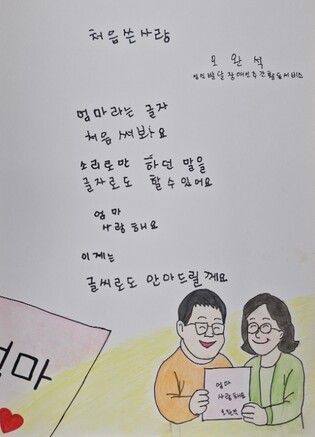 처음 쓴 사랑
모완석
성인발달장애인주간활동서비스
엄마라는 글자
처음 써봐요
소리로만 하던 말을
글자로도 할 수 있어요
엄마
사랑해요
이제는
글씨로도 안아드릴께요
엄마
엄마
사랑해요